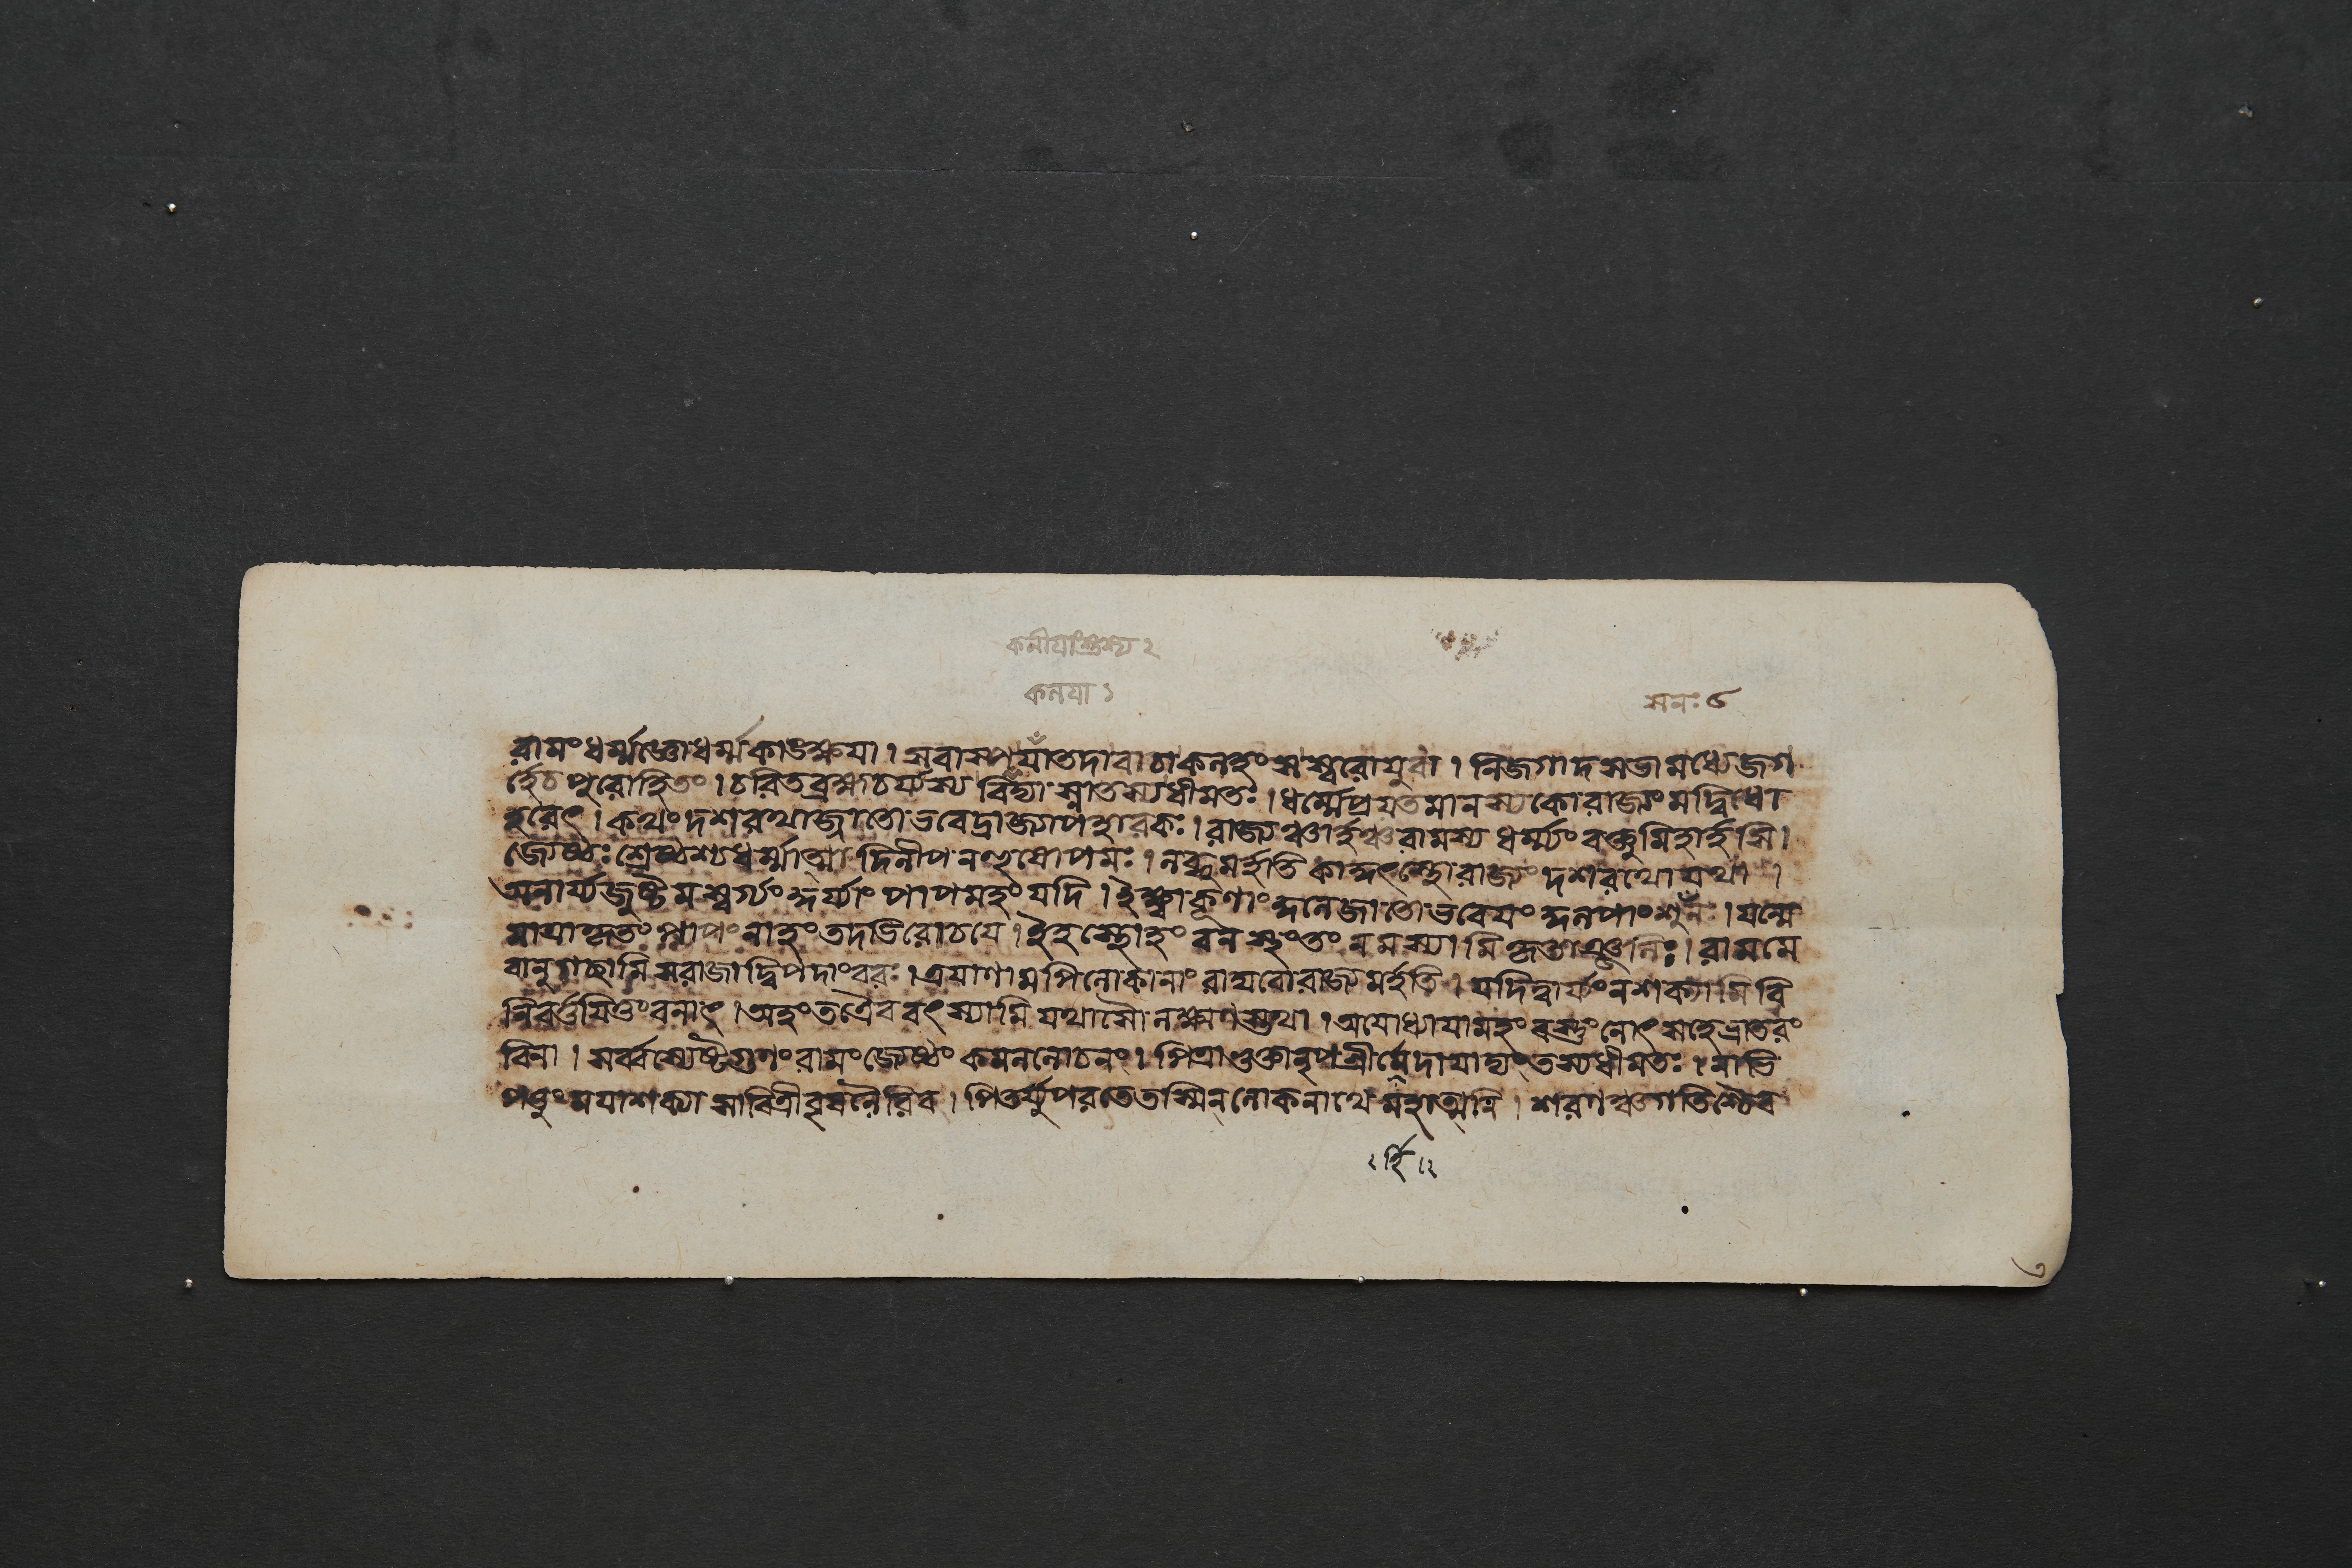 কনীযাংশুস্য ২
কনযা ১
মনঃ ৫
রামং ধর্ম্মজ্ঞো ধর্ম্মকাঙ্ক্ষযা । স বাস্প যাঁ তদা বাচা কলহংসস্বরো যুবা । নিজগাদ সভামধ্যে জগ
র্হে চ পুরোহিতং । চরিতব্রহ্মচর্য্যস্য বিদ্যাস্নাতস্য ধীমতঃ । ধর্ম্মে প্রযতমানস্য কো রাজ্যং মদ্বিধো
হরেৎ । কথং দশরথাজ্জাতো ভবেদ্রাজ্যাপহারকঃ । রাজ্যঞ্চার্হঞ্চ রামস্য ধর্ম্ম্যং বক্তুমিহার্হসি ।
জ্যেষ্ঠঃ শ্রেষ্ঠশ্চ ধর্ম্মাত্মা দিলীপনহুষোপমঃ । লব্ধুমর্হতি কাকুৎস্থো রাজ্যং দশরথো যথা ।
অনার্য্যজুষ্টমস্বর্গ্যং কুর্য্যাং পাপমহং যদি । ইক্ষ্বাকূণাং কুলে জাতো ভবেযং কুলপাংশুলঃ । যন্মে
মাত্রা কৃতং পাপং নাহং তদভিরোচযে । ইহস্থোহং বনস্থং তং নমস্যামি কৃতাঞ্জলিঃ । রামমে
বানুগছামি স রাজা দ্বিপদাং বরঃ । ত্রযাণামপি লোকানাং রাঘবো রাজ্যমর্হতি । যদি ত্বার্য্যং ন শক্যামি বি
নিবর্ত্তযিতুং বনাৎ । অহং তত্রৈব বৎস্যামি যথাসৌ লক্ষ্মণস্তথা । অযোধ্যাযামহং বস্তুং নোৎসহে ভ্রাতরং
বিনা । সর্ব্বশ্যেষ্টগুণং রামং জ্যেষ্ঠং কমললোচনং । পিত্রা ভুক্তা নৃপশ্রীর্মে দাযাদ্যং তস্য ধীমতঃ । নাভি
পত্তুং মযা শক্যা সাবিত্রী বৃষলৈরিব । পিতর্য্যুপরতে তস্মিন্ লোকনাথে মহাত্মনি । শরণঞ্চ গতিশ্চৈব